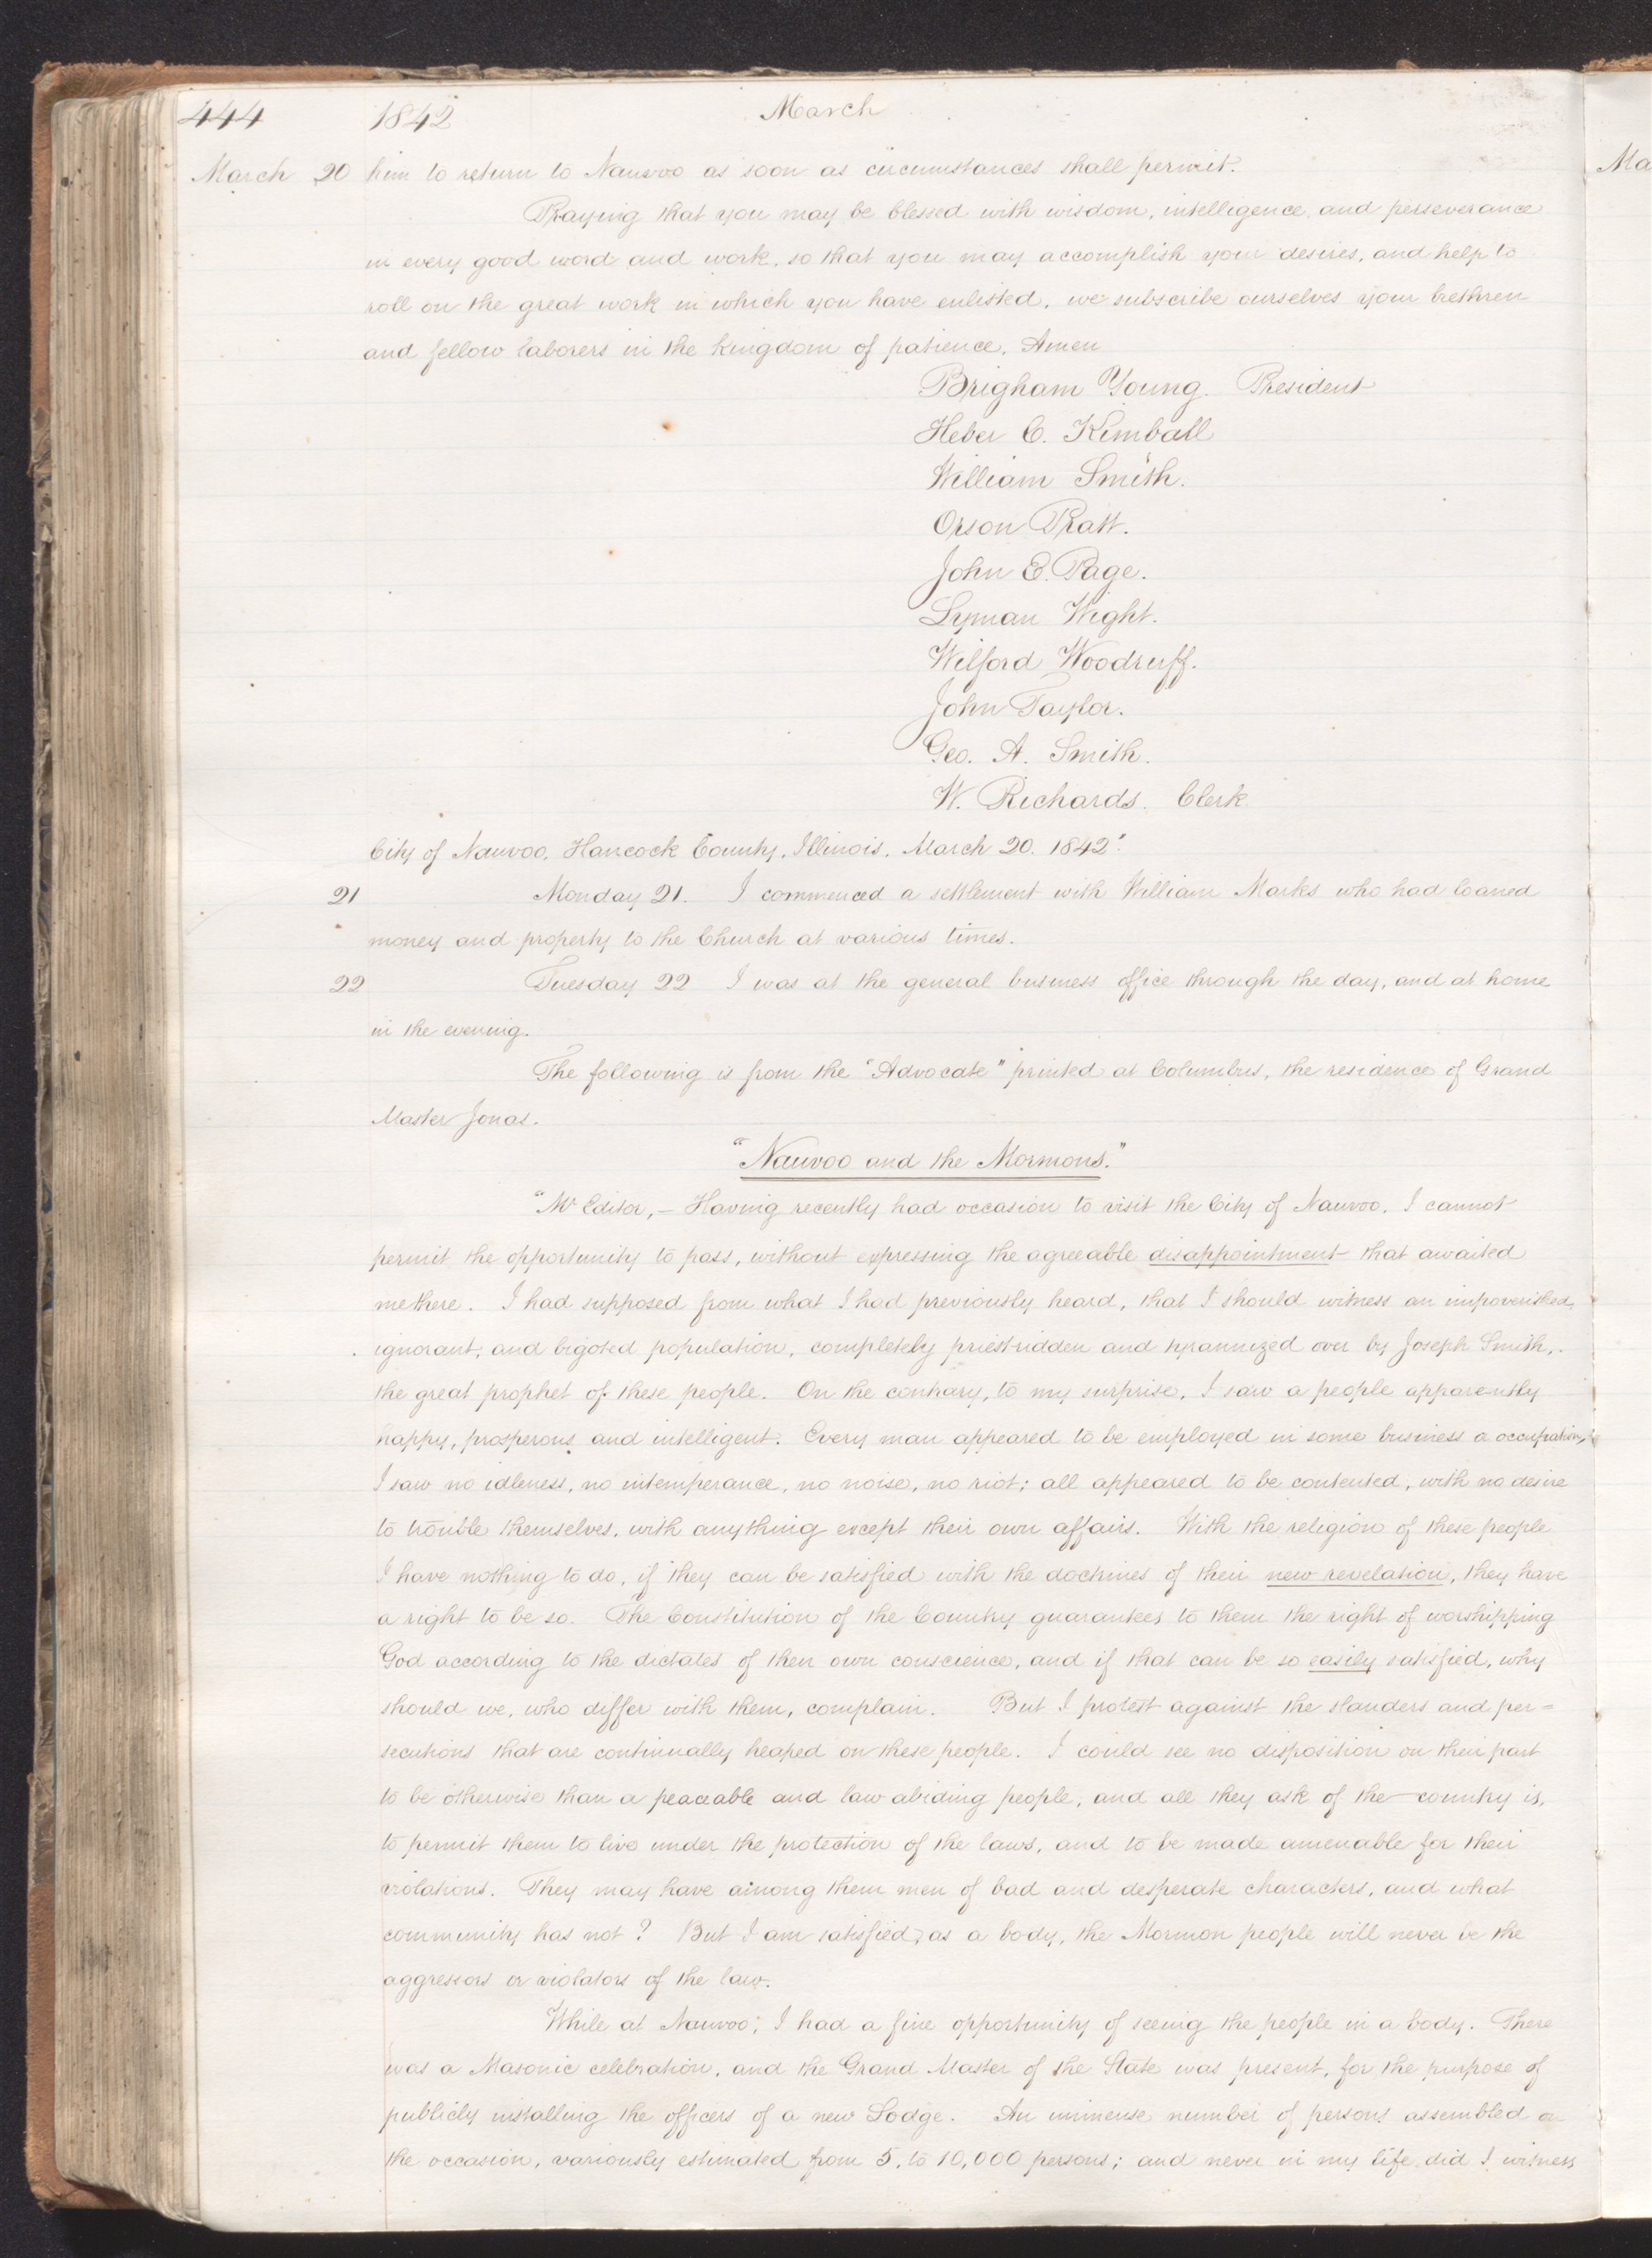 444 1842 March
March 20 him to return to Nauvoo as soon as circumstances shall permit.
Praying that you may be blessed with wisdom, intelligence, and perseverance
in every good word and work, so that you may accomplish your desires, and help to
roll on the great work in which you have enlisted, we subscribe ourselves your brethren
and fellow laborers in the kingdom of patience, Amen
Brigham Young. President
Heber C. Kimball
William Smith.
Orson Pratt.
John E. Page.
Lyman Wight.
Wilford Woodruff.
John Taylor.
Geo. A. Smith.
W. Richards. Clerk
City of Nauvoo, Hancock County, Illinois, March 20. 1842".
21 Monday 21. I commenced a settlement with William Marks who had loaned
money and property to the Church at various times.
22 Tuesday 22 I was at the general business office through the day, and at home
in the evening.
The following is from the "Advocate" printed at Columbus, the residence of Grand
Master Jonas.
"Nauvoo and the Mormons."
"Mr Editor,— Having recently had occasion to visit the City of Nauvoo, I cannot
permit the opportunity to pass, without expressing the agreeable disappointment that awaited
me there. I had supposed from what I had previously heard, that I should witness an impoverished,
ignorant, and bigoted population, completely priestridden and tyrannized over by Joseph Smith,
the great prophet of these people. On the contrary, to my surprise, I saw a people apparently
happy, prosperous and intelligent. Every man appeared to be employed in some business or occupation,
I saw no idleness, no intemperance, no noise, no riot; all appeared to be contented, with no desire
to trouble themselves, with anything except their own affairs. With the religion of these people
I have nothing to do, if they can be satisfied with the doctrines of their new revelation, they have
a right to be so. The Constitution of the Country guarantees to them the right of worshipping
God according to the dictates of their own conscience, and if that can be so easily satisfied, why
should we, who differ with them, complain. But I protest against the slanders and per=
secutions that are continually heaped on these people. I could see no disposition on their part
to be otherwise than a peaceable and law abiding people, and all they ask of the country is,
to permit them to live under the protection of the laws, and to be made amenable for their
violations. They may have among them men of bad and desperate characters, and what
community has not? But I am satisfied, as a body, the Mormon people will never be the
aggressors or violators of the law.
While at Nauvoo, I had a fine opportunity of seeing the people in a body. There
was a Masonic celebration, and the Grand Master of the State was present, for the purpose of
publicly installing the officers of a new Lodge. An immense number of persons assembled on
the occasion, variously estimated from 5, to 10,000 persons; and never in my life did I witness
Ma